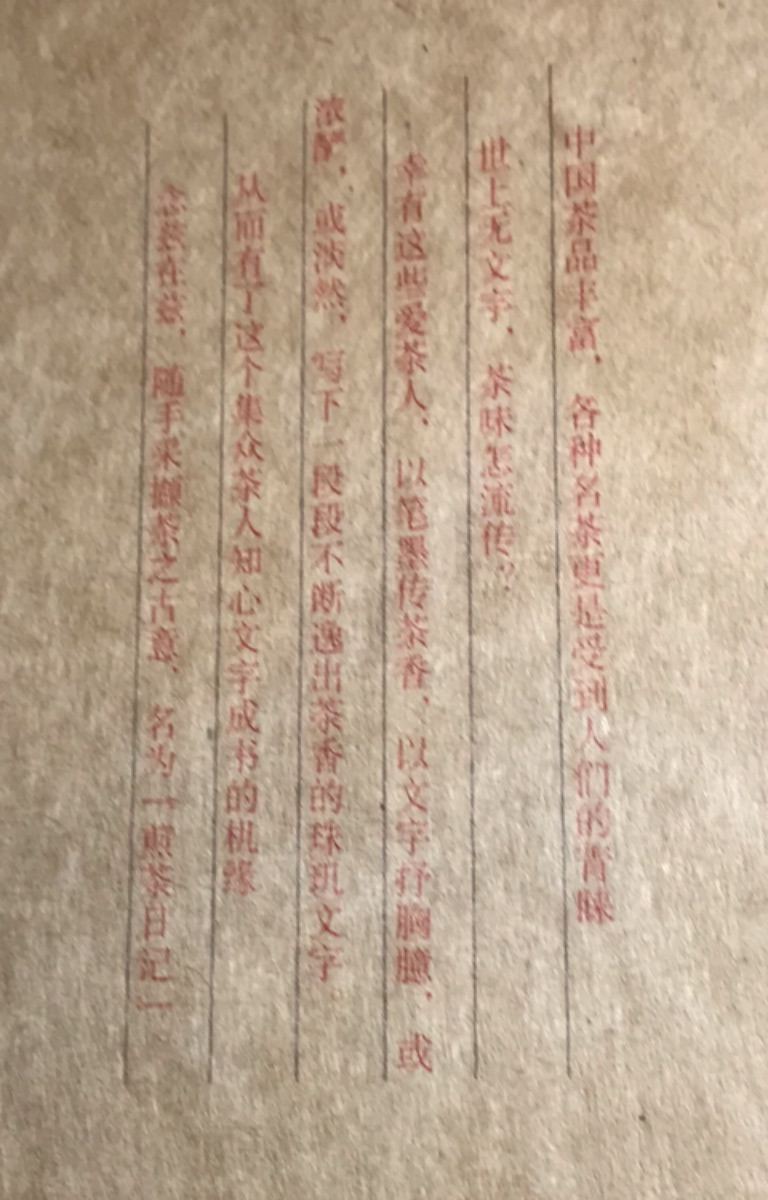 中国茶品丰富，各种名茶更是受到人们的青睐
世上无文字，茶味怎流传？
幸有这些爱茶人，以笔墨传茶香，以文字抒胸臆，或
浓酽，或淡然，写下一段段不断逸出茶香的珠玑文字
从而有了这个集众茶人知心文字成书的机缘
念兹在兹，随手采撷茶之古意，名为「煎茶日记」